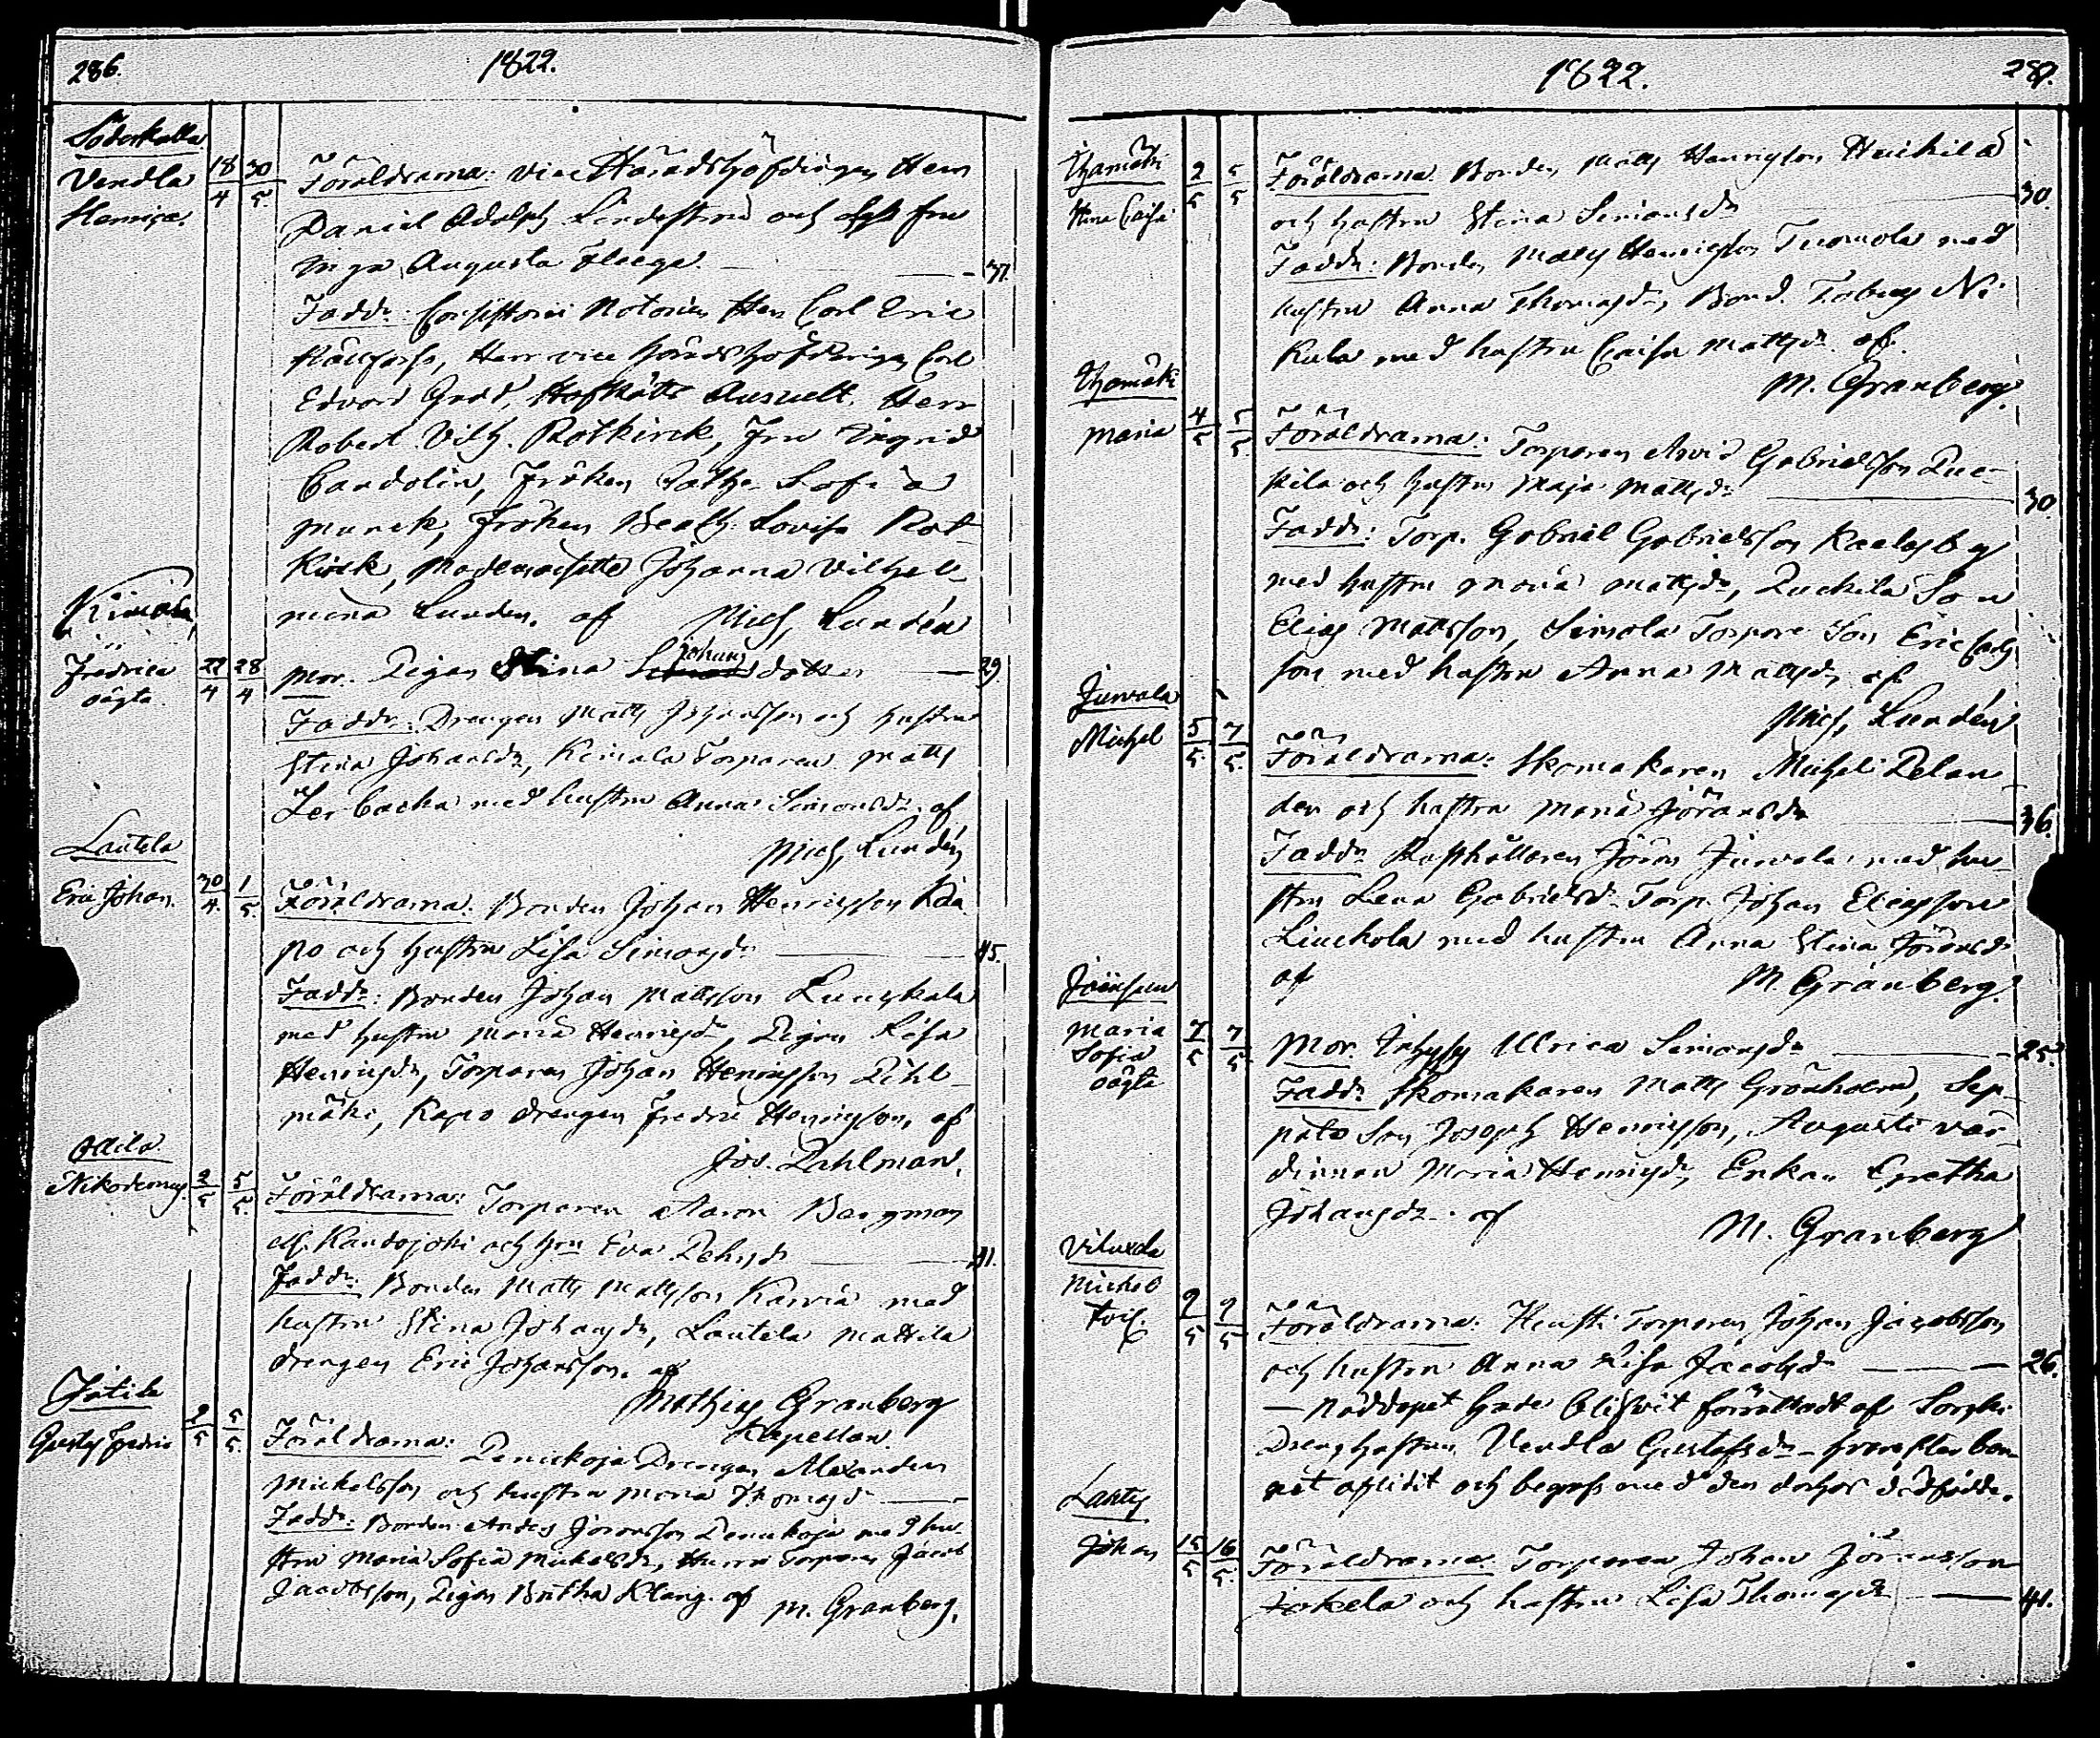 286.
1822.
Söderkulla
Vendla
Henrica.
18/4 30/5
Föräldrarna: Vice Häradshöfdingen Herr
Daniel Adolph Lindeström och dess fru
Inga Augusta Fleege. 37.
Fadd: Consistorii Notarien Herr Carl Eric
Herr vice Häradshöfdingen Carl
Edvard Gadd, Hofrätts Auscult. Herr
Robert Vilh. Rotkirck, Fru Ingrid
Candolin, Fröken Cath. Sofia
Munck, Fröken Beath. Lovisa Rot-
kirck, Mademoiselle Johanna Vilhel-
mina Lunden. af Mich. Lundén
Kimala
Fredrica
oägta.
22/4 28/4
Mor. Pigan Stina Johansdotter 29
Faddr: Drengen Matts Johansson och hustrun
Stina Johansdr, Kimala Torparen Matts
Lerbacka med hustrun Anna Simonsdr. af
Mich. Lundén
Lautela
Eric Johan.
30/4. 1/5.
Föräldrarna: Bonden Johan Henricsson Ka-
po och hustrun Lisa Simonsdr 45.
Faddr: Bonden Johan Mattsson
med hustrun Maria Henricsdr, Pigan Lisa
Henricsdr, Torparen Johan Henricsson Pihl-
mäki, Kapo drengen Fredric Henricsson, af
Jos. Pahlman.
Nikodemus.
2/5 5/5.
Föräldrarna: Torparen Aaron Bergman
och hru Eva 41.
Faddr: Bonden Matts Mattsson med
hustrun Stina Johansdr, Lautela Mattila
drengen Eric Johansson. af
Mathias Granberg
Kapellan.
Gustaf Fredric
2/5 5/5.
Föräldrarna: Drengen Alexander
Mickelsson och hustrun Maria Thomasdr
Faddr: Bonden Anders Jöransson med hu-
strun Maria Sofia Mickelsdr, Torparen Jacob
Jacobsson, Pigan Britha Klang. af M. Granberg.
1822.
287.
Stina Caisa
2/5 5/5
Föräldrarna: Bonden Matts Henricsson Heickilä
och hustrun Stina Simonsdr 30.
Faddr: Bonden Matts Henricsson Tuomola med
hustrun Anna Thomasdr, Bond. Tobias Ni-
kula med hustrun Caisa Mattsdr. af.
M. Granberg.
Maria
4/5 5/5.
Föräldrarna: Torparen Arvid Gabrielsson
och hustrun Maja Mattsdr 30.
Faddr: Torp. Gabriel Gabrielsson
med hustrun Maria Mattsdr, Son
Elias Mattsson, Simola Torpare Son Eric Carls
son med hustrun Anna Mattsdr, af
Mich. Lundén
Jurvala
Michel
5/5. 7/5.
Föräldrarna: Skomakaren Michel Pelan
der och hustrun Maria Jöransdr 36.
Faddr Rusthållaren Jöran Jurvala med hu-
strun Lena Gabrielsdr. Torp. Johan Eliasson
med hustrun Anna Stina Jöransdr
af M. Granberg.
Joensuu
Maria
Sofia
oägta
7/5 7/5.
Mor. Inhyses Ulrica Simonsdr 25
Faddr Skomakaren Matts Grönholm, Sep-
pälä Son Joseph Henricsson, Augusti vär-
dinnan Maria Henricsdr, Enkan Gretha
Johansdr. af
M. Granberg
Viluxela
Michel
9/5 9/5
Föräldrarna: Torparen Johan Jacobsson
och hustrun Anna Lisa Jacobsdr 26.
– Nöddopet hade blifvit förrättadt af
Drenghustrun Vendla Gustafsdr – hvarefter bar-
net aflidit och begrofs med den dödfödde.
Johan
15/5 16/5.
Föräldrarna: Torparen Johan Jöransson
Jokela och hustrun Lisa Thomasdr 41.